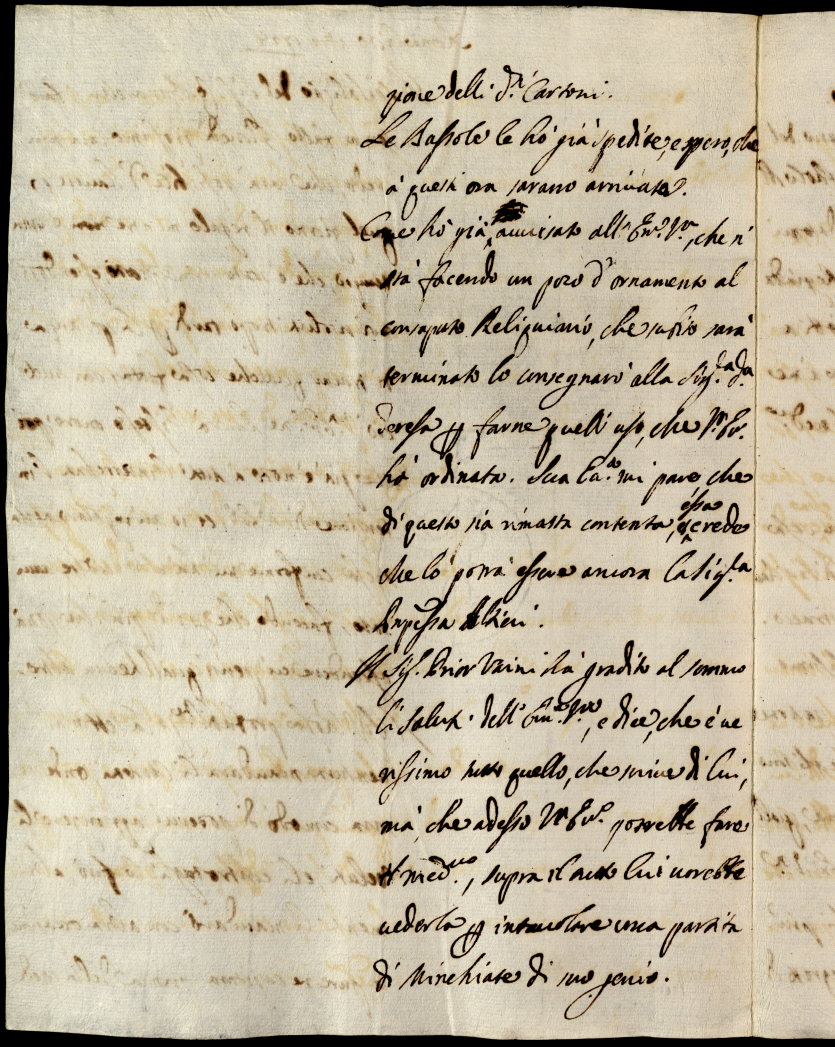 zione delli d.i Cartoni.
Le Bussole le hò già spedite, e spero, che
à quest'ora sarano arrivate.
Come hò già avvisato all'Em.a V.ra, che si
stà facendo un poco d'ornamento al
consaputo Reliquiario, che subito sarà
terminato lo consegnarò alla Sig.ra D.a
Teresa p farne quell'uso, che V.ra Em.
hà ordinato. Sua Ecc.a mi pare che
di questo sia rimasta contenta, e credo essa
che lo potrà essere ancora la Sig.ra
Pnpessa Altieri.
Il Sig. Prior Vaini hà gradito al sommo
li saluti dell'Em.a V.ra, e dice, che è ve
rissimo tutto quello, che scrive di lui,
mà, che adesso V.ra Em.a potrebbe fare
il med.mo, sopra il tutto lui vorebbe
vederla p intavolare una partita
di Minchiate di suo genio.